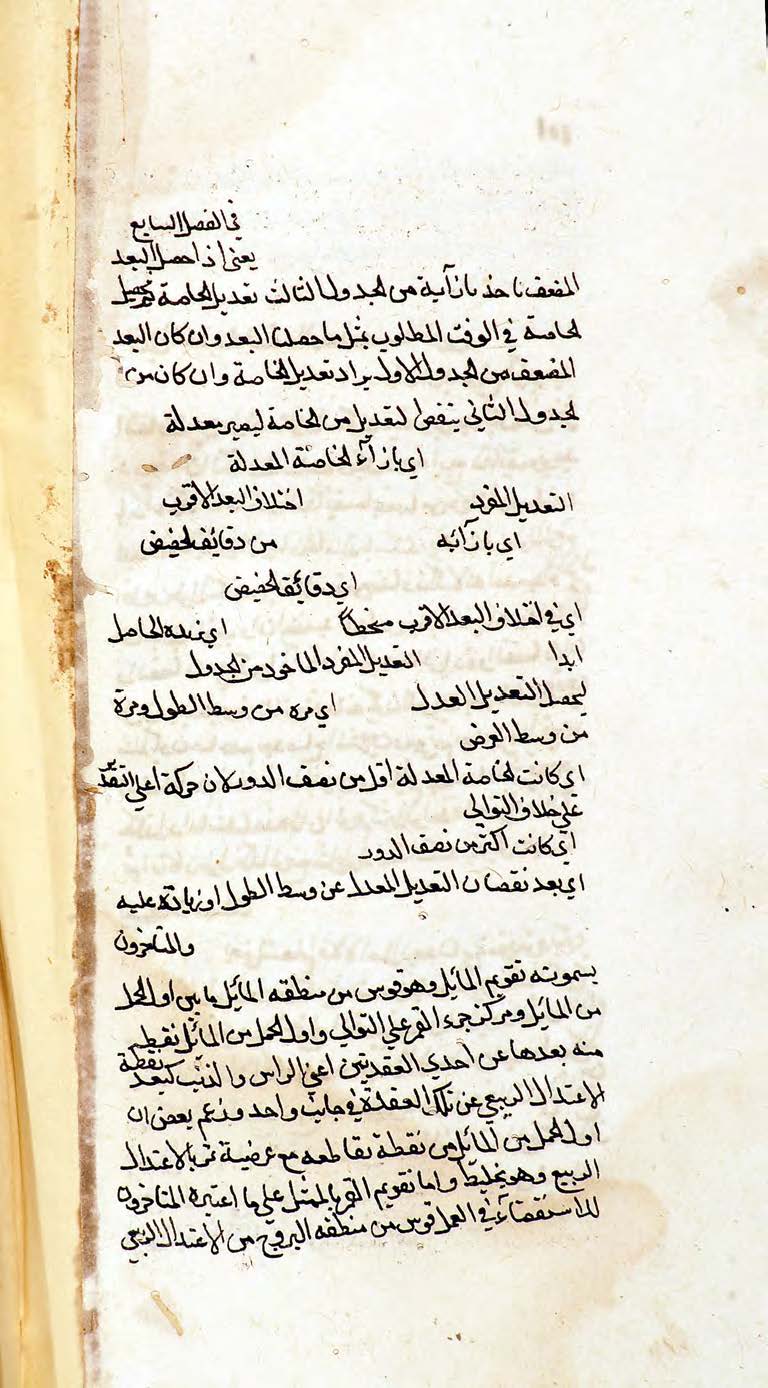 في الفصل السابع
يعنى اذا حصل البعد
المضعف ناخذ بازآيه من الجدول الثالث تعديل الخاصة ثم يحصل
الخاصة في الوقت المطلوب بمثل ما حصلنا البعد وان كان البعد
المضعف من الجدول الاول يزاد تعديل الخاصة وان كان من
الجدول الثاني ينقص التعديل من الخاصة ليصير معدلة
اي بازآء الخاصة المعدلة
التعديل المفرد اختلاف البعد الاقرب
اي بازآئه من دقائق الحضيض
اي دقائق الحضيض
اي في اختلاف البعد الاقرب منحطا اي نزيده الحاصل
ابدا التعديل المفرد الماخوذ من الجدول
ليحصل التعديل المعدل اي مرة من وسط الطول ومرة
من وسط العرض
اي كانت الخاصة المعدلة اقل من نصف الدور لان حركة اعلي التدوير
علي خلاف التوالي
اي كانت اكثر من نصف الدور
اي بعد نقصان التعديل المعدل عن وسط الطول او زيادة عليه
والمتاخرون
يسمونه تقويم المائل وهو قوس من منطقه المائل ما بين اول الحمل
من المائل ومركز جرم القمر علي التوالي واول الحمل من المائل نقطة
منه بعدها عن احدي العقدتين اعني الراس والذنب كبعد نقطة
الاعتدال الربيعي عن تلك العقدة في جانب واحد وزعم بعض ان
اول الحمل من المائل من نقطة تقاطعه مع عرضية تمر بالاعتدال
الربيع وهو تخليط واما تقويم القمر بالممثل علي ما اعتبره المتاخرون
للاستقصآء في العمل قوس من منطقه البروج من الاعتدال الربيعي